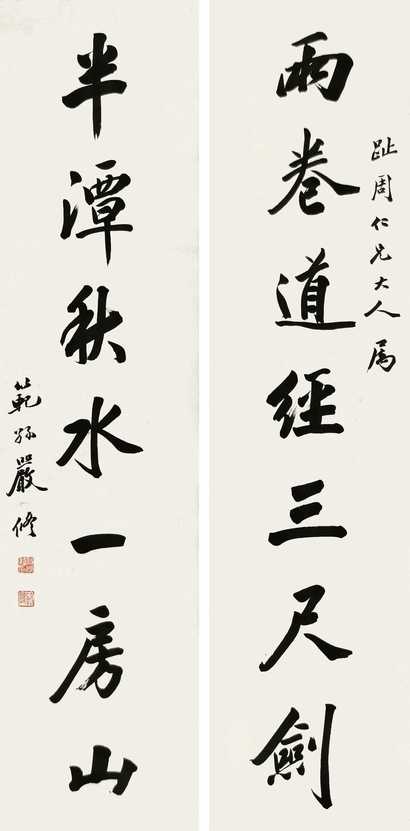 趾周仁兄大人属
兩卷道經三尺劍
半潭秋水一房山
範孫嚴修